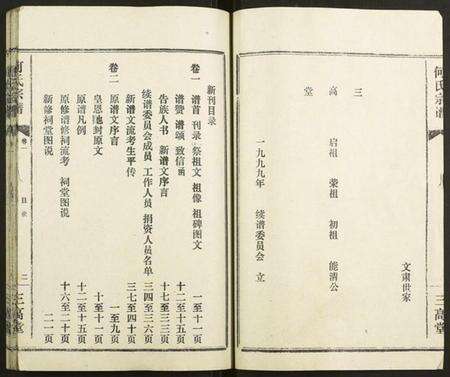 何氏宗谱
三高堂
文肃世家
三高堂
启祖 荣祖 初祖 能清公
一九九九年 续谱委员会 立
新刊目录
卷一
谱首 刊录 祭祖文 祖像 祖碑图文 一至十一页
谱赞 谱颂 致信函 十二至十五页
告族人书 新谱文序言 十六至三三页
续谱委员会成员 工作人员 捐资人员名单 三四至三六页
新谱文流考生平传 三七至四十页
卷二
原谱文序言 一至九页
皇恩敕封原文 十至十一页
原谱凡例 十二至十五页
原修谱修祠流考 祠堂图说 十六至二十页
新修祠堂图说 二一页
何氏宗谱
卷一
目录
二
三高堂